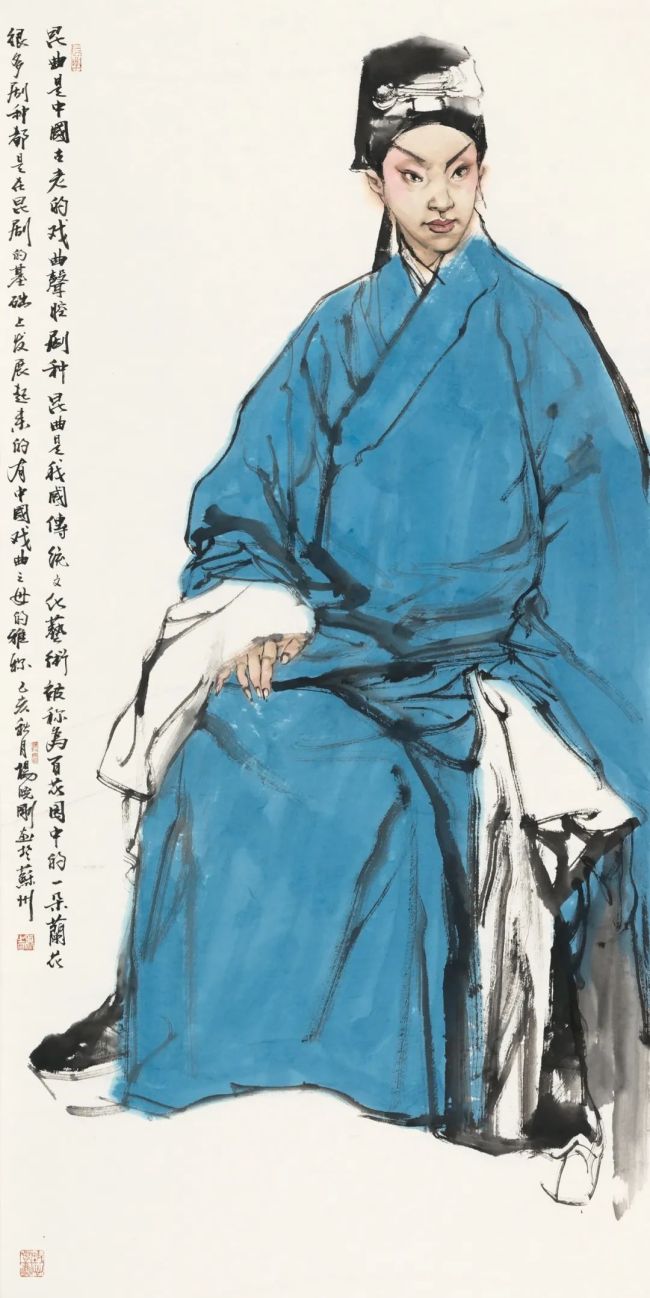 昆曲是中國古老的戏曲聲腔剧种 昆曲是我國傳统文化藝術 被称為百花园中的一朵蘭花
很多剧种都是在昆剧的基础上发展起来的有中國戏曲之母的雅称 己亥秋月楊晓刚画於蘇州